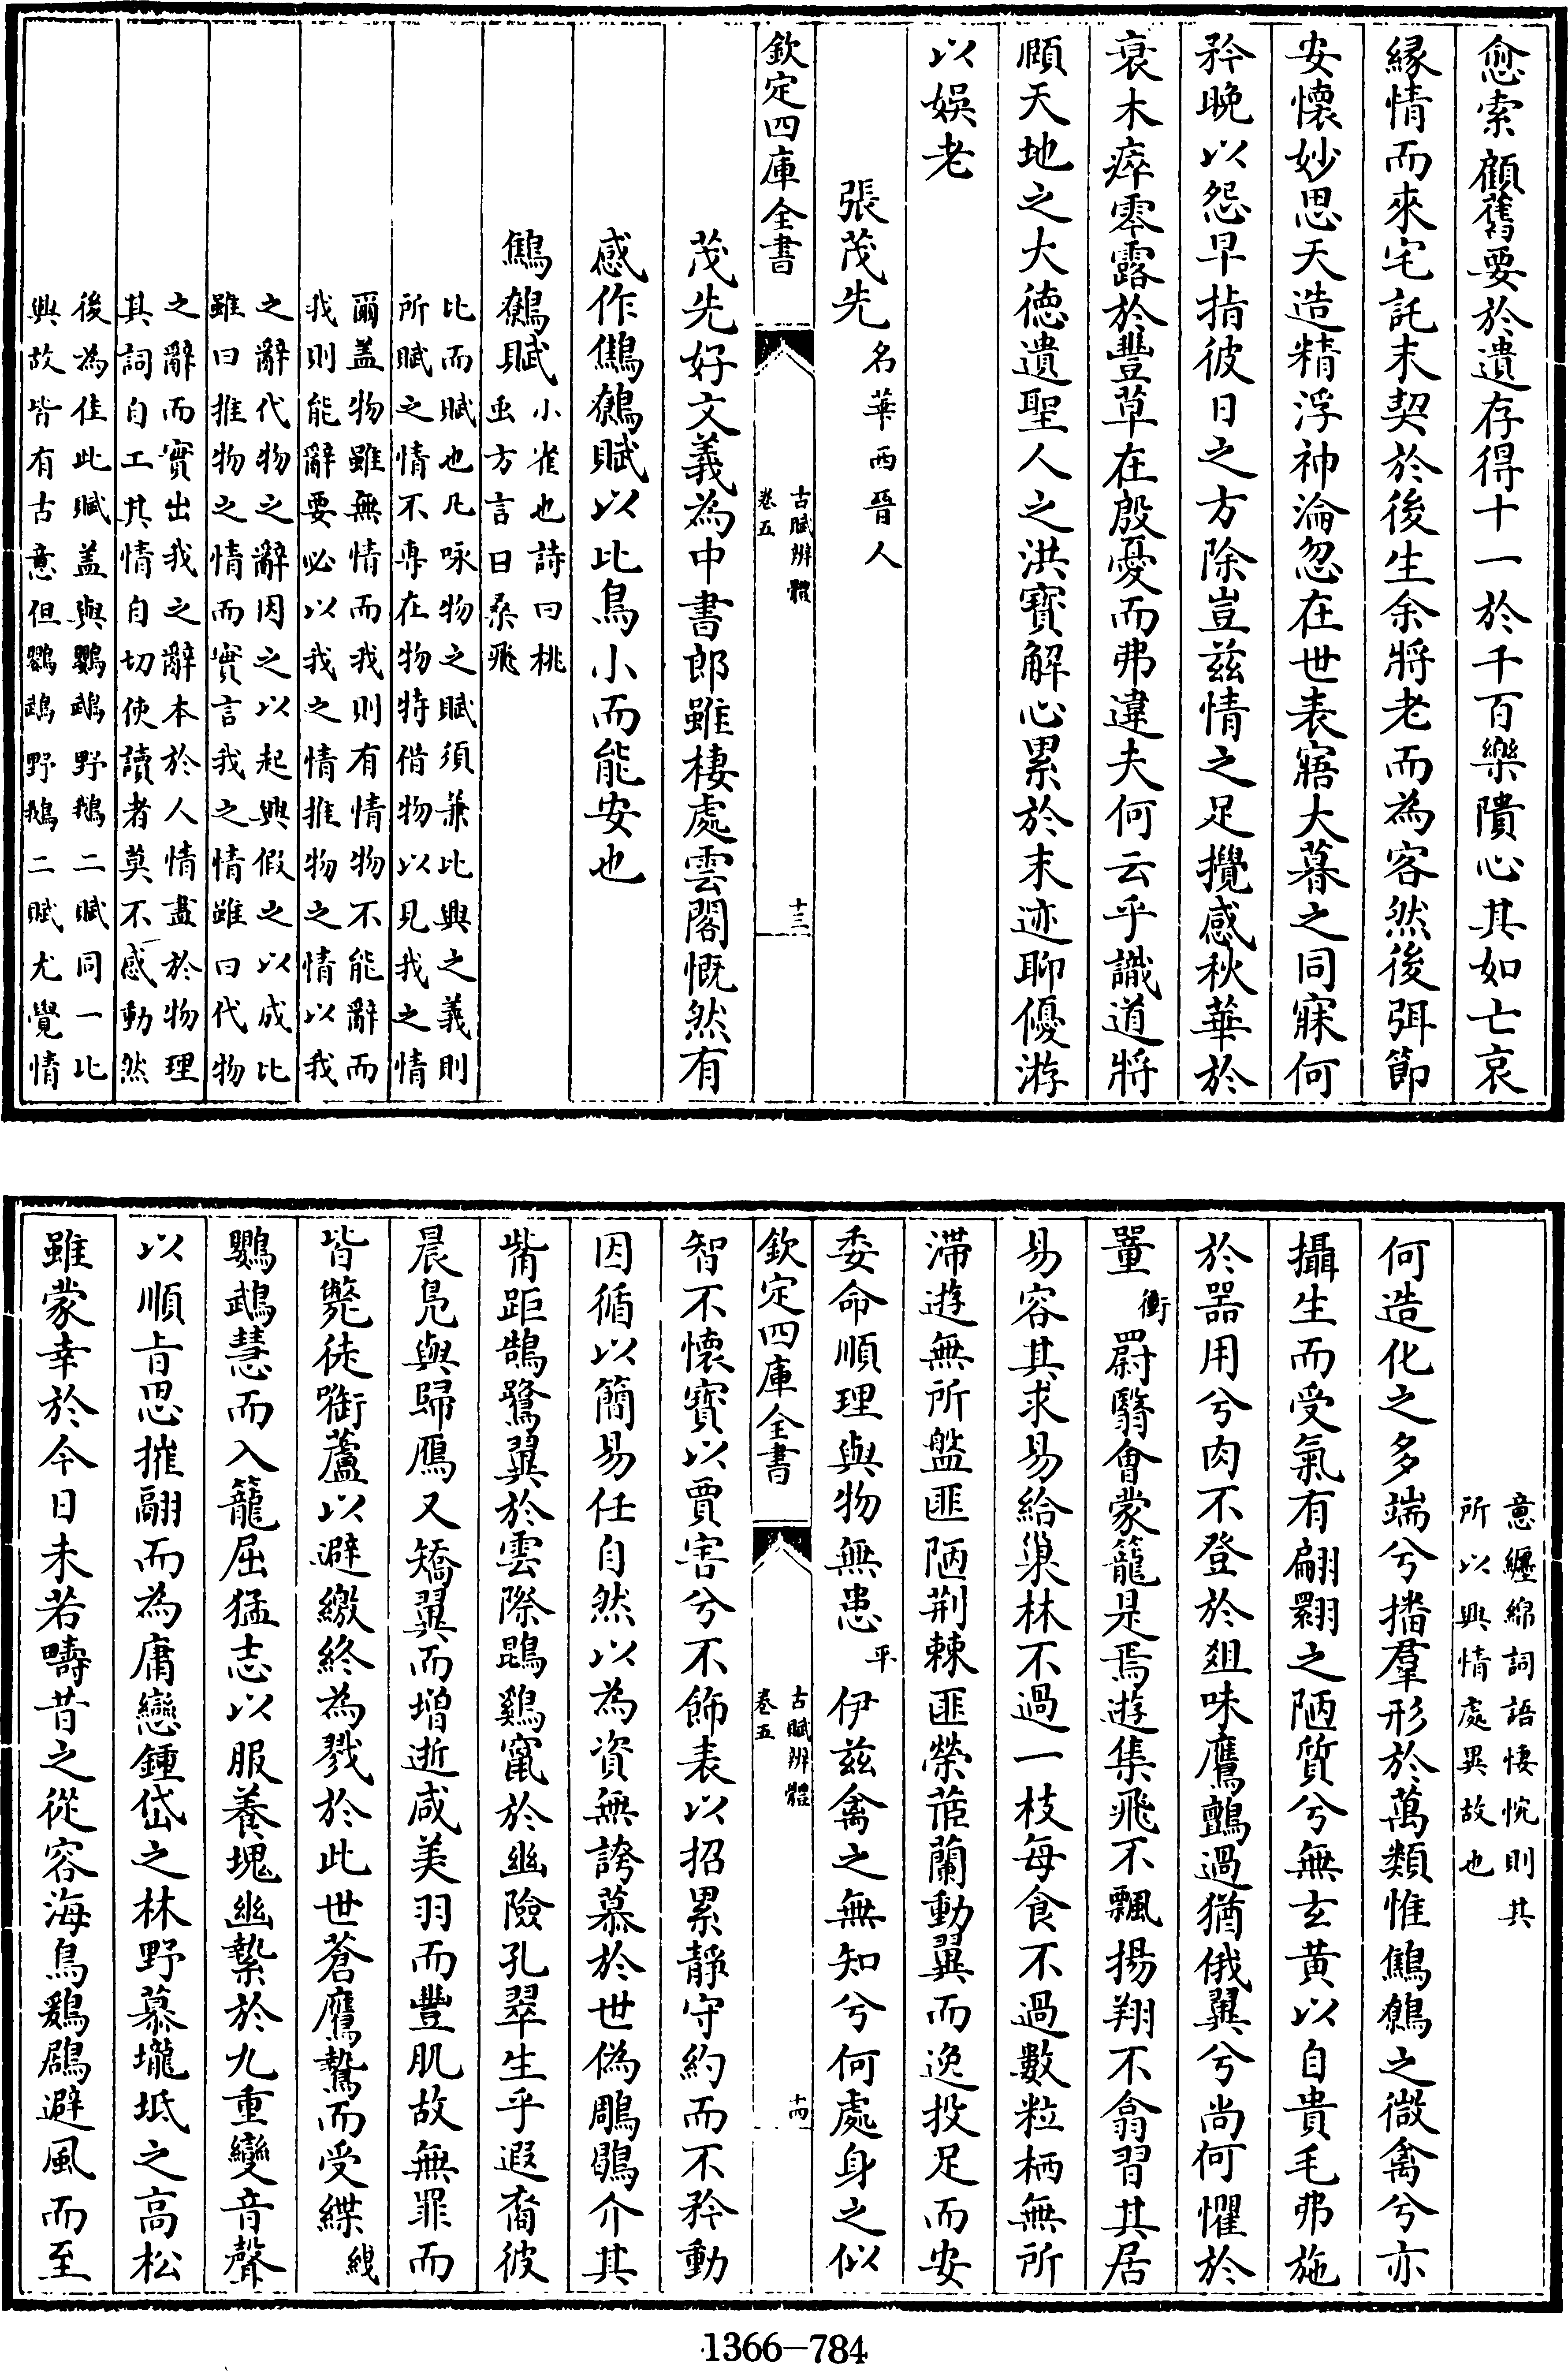 愈索顧舊要於遺存得十一於千百樂隤心其如亡哀
縁情而來宅託末契於後生余將老而為客然後弭節
安懷妙思天造精浮神淪忽在世表寤大暮之同寐何
矜晚以怨早指彼日之方除豈兹情之足攪感秋華於
衰木瘁零露於豐草在殷憂而弗違夫何云乎識道將
頤天地之大德遺聖人之洪寶解心累於末迹聊優游
以娛老
張茂先名華西晉人
欽定四庫全書
古賦辨體
卷五
十三
茂先好文義為中書郎雖棲處雲閣慨然有
感作鷦鷯賦以比鳥小而能安也
鷦鷯賦小雀也詩曰桃
虫方言曰桑飛
比而賦也凡咏物之賦須兼比興之義則
所賦之情不專在物特借物以見我之情
爾盖物雖無情而我則有情物不能辭而
我則能辭要必以我之情推物之情以我
之辭代物之辭因之以起興假之以成比
雖曰推物之情而實言我之情雖曰代物
之辭而實出我之辭本於人情盡於物理
其詞自工其情自切使讀者莫不感動然
後為佳此賦盖與鸚鵡野鵝二賦同一比
興故皆有古意但鸚鵡野鵝二賦尤覺情
意纒綿詞語悽惋則其
所以興情處異故也
何造化之多端兮播羣形於萬類惟鷦鷯之微禽兮亦
攝生而受氣有翩翾之陋質兮無玄黄以自貴毛弗施
於噐用兮肉不登於爼味鷹鸇過猶俄翼兮尚何懼於
罿衝罻翳薈蒙籠是焉遊集飛不飄揚翔不翕習其居
易容其求易給巢林不過一枝每食不過數粒栖無所
滯遊無所盤匪陋荆棘匪榮茝蘭動翼而逸投足而安
委命順理與物無患平伊兹禽之無知兮何處身之似
欽定四庫全書
古賦辨體
卷五
十四
智不懷寶以賈害兮不飾表以招累靜守約而不矜動
因循以簡易任自然以為資無誇慕於世偽鵰鶡介其
觜距鵠鷺翼於雲際鵾鷄竄於幽險孔翠生乎遐裔彼
晨鳬與歸鴈又矯翼而增逝咸美羽而豐肌故無罪而
皆斃徒銜蘆以避繳終為戮於此世蒼鷹鷙而受緤絏
鸚鵡慧而入籠屈猛志以服養塊幽縶於九重變音聲
以順㫖思摧翮而為庸戀鍾岱之林野慕壠坻之高松
雖蒙幸於今日未若疇昔之從容海鳥鶢鶋避風而至
1366—784